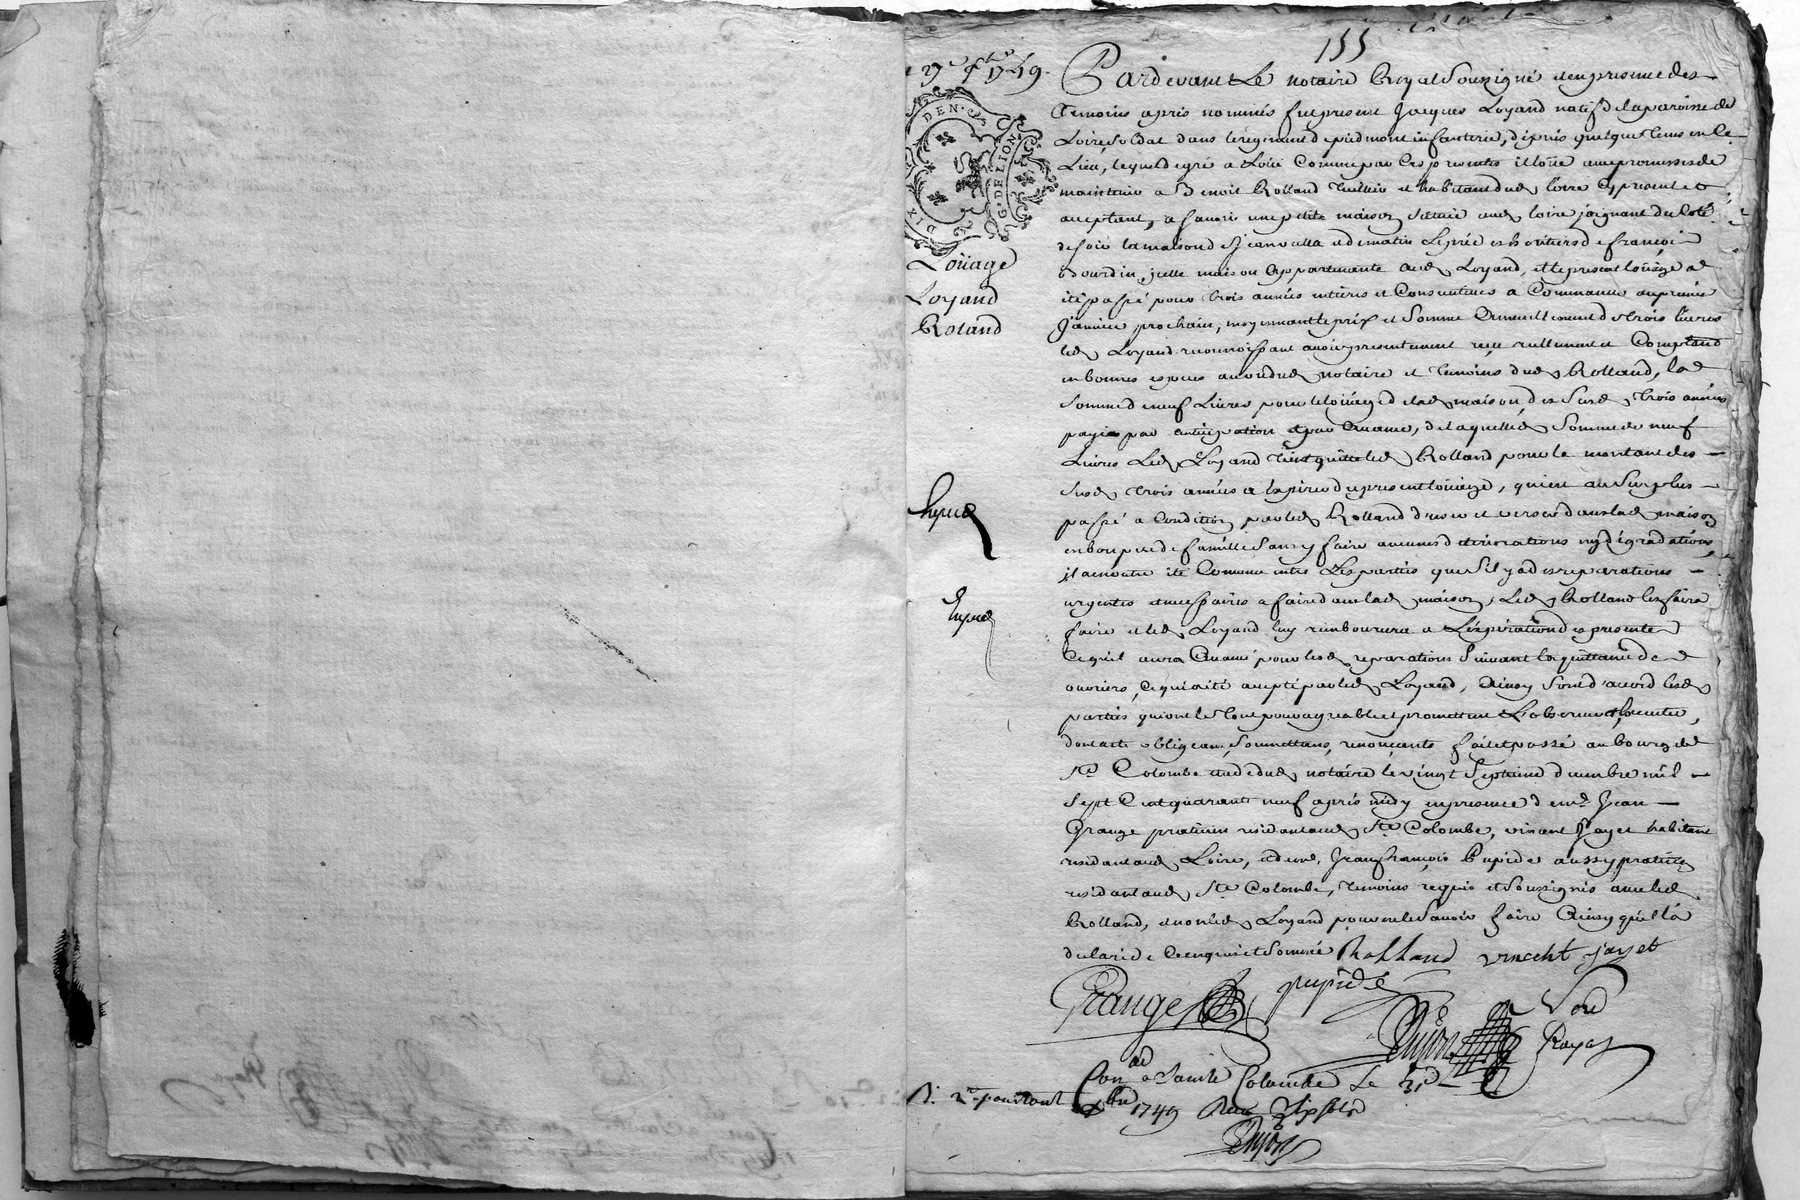 155
27e 9bre 1749.
DIX DEN.
G. DE LION
Loüage
Loyand
Roland
Pardevant Le notaire Royal Soussigné et en presence des
Temoins après nommés fut present Jacques Loyand natif de la paroisse de
Loire Soldat dans le regiment de piedmont infanterie, depuis quelque tems en ce
Lieu, lequel de gré a Loüé Comme par ces presentes il loüe avec promesses de
maintenir a Benoit Rolland Tuillier et habitant dud. Loire cy present et
acceptant, a scavoir une petite maison Scituée aud. loire joignant du Coté
de soir la maison de Jean et de matin Les heritiers de françois
Bourdin, jcelle maison appartenante aud. Loyand, et le present loüage a
été passé pour trois années entieres et Consecutives a Commancer au premier
Janvier prochain, moyennant le prix et Somme annuellement de trois livres
led. Loyand reconnoissant avoir presentement reçu reellement et Comptant
en bonnes especes au vû dud. notaire et temoins dud. Rolland, lad.
Somme de neuf Livres pour le loüage de lad. maison, des Susd. trois années
payée par anticipation et par avance, de laquelle Somme de neuf
Livres Led. Loyand tient quitte led. Rolland pour le montant des
Susd. trois années a expirer du present loüage, qui est au Surplus
passé a Condition par led. Rolland d'user et verser dans lad. maison
en bon pere de famille Sans y faire aucunes deteriorations ny dégradations,
jl a en outre été Convenu entre Les parties que S'il y a des reparations
urgentes et necessaires a faire dans lad. maison, Led. Rolland les faira
faire et led. Loyand luy remboursera a L'éxpiration des presentes
Ce qu'il aura avancé pour lesd. reparations Suivant la quittance des
ouvriers, Ce qui a été accepté par led. Loyand, Ainsy Sont d'accord lesd.
parties qui ont le tout pour agreable et promettent L'observer et executer,
dont acte obligeans, Soumettans, renonçants fait et passé au bourg de
Ste Colombe etude dud. notaire le vingt Septieme decembre mil
Sept Cent quarante neuf après midy en presence de me Jean
Grange praticien residant aud. Ste Colombe, vincent Jayet habitant
residant aud. Loire, et de me Jean françois Pupide aussy praticien
residant aud. Ste Colombe, temoins requis et Soussignés avec led.
Rolland, et non led. Loyand pour ne le Scavoir faire Ainsy qu'il l'a
declaré de Ce enquis et Sommé Rolland vincent Jayet
Grange pupide
Dujas Nore Royal
Con.lé a Sainte Colombe Le
9bre 1749 Reçu
Dujas
Expedié
Expedié